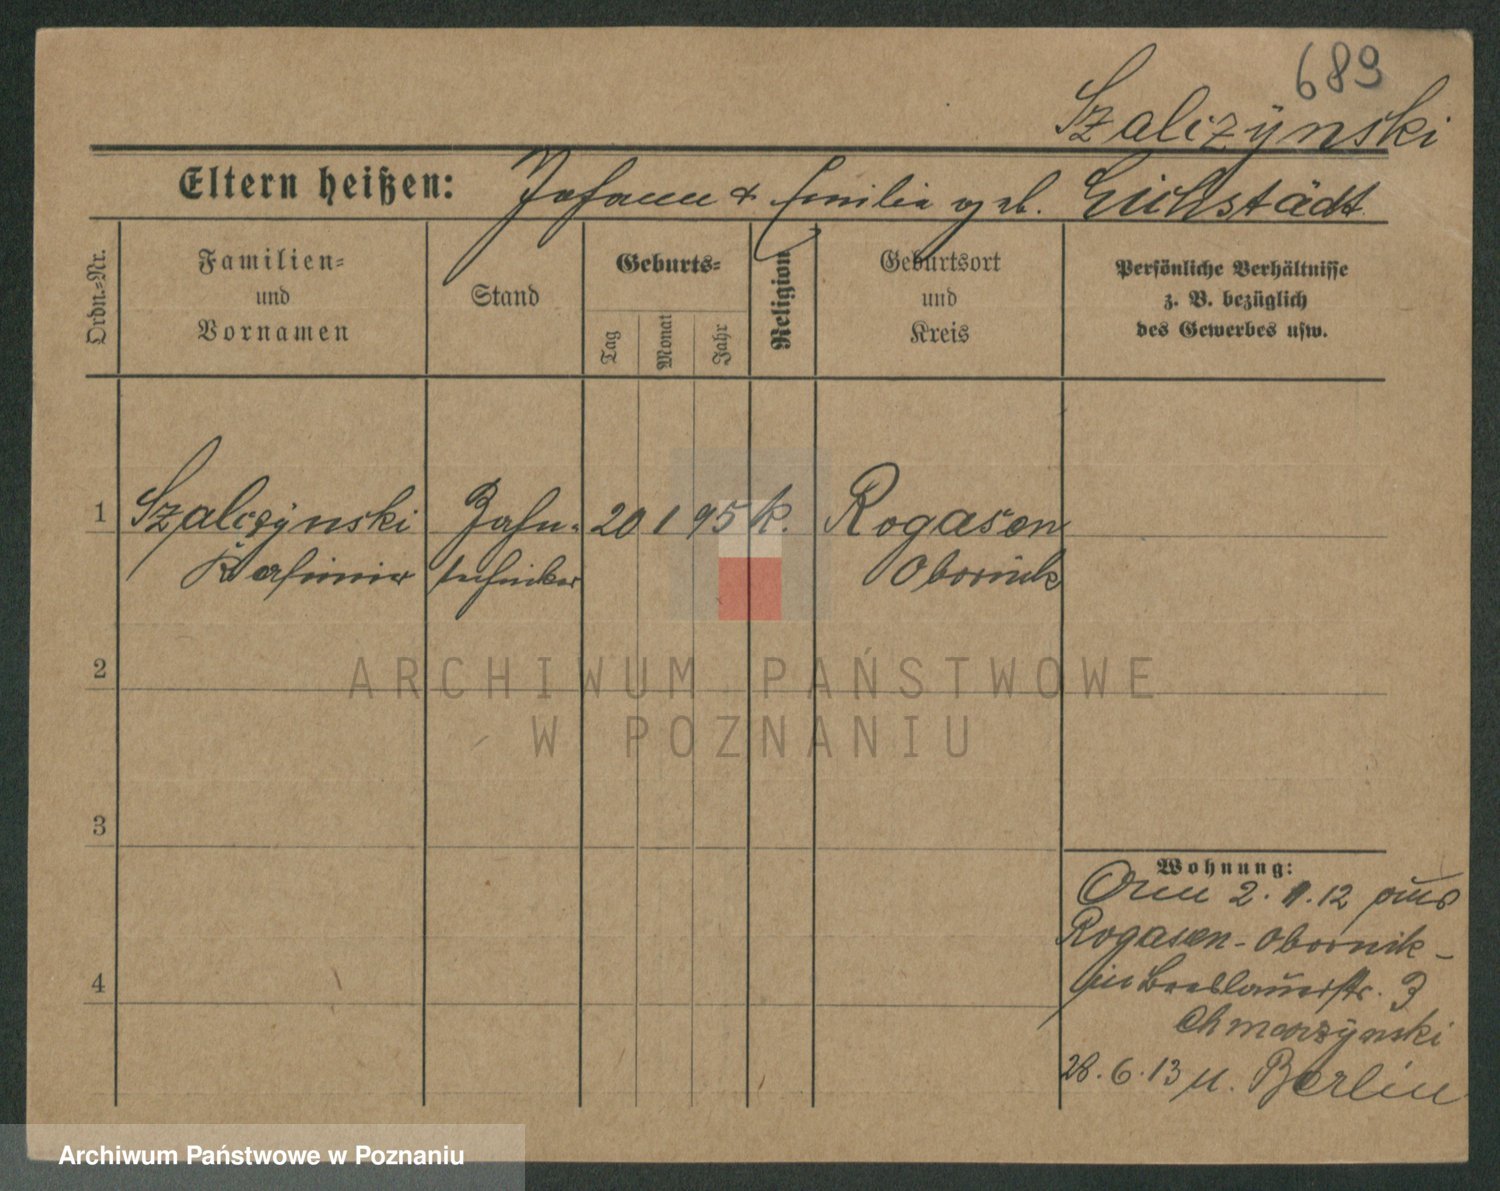 689
Szalczÿnski
Eltern heißen: Johann & Emilia geb. Eichstädt
Ordn.-Nr.
Familien-
und
Vornamen
Stand
Geburts-
Tag
Monat
Jahr
Religion
Geburtsort
und
Kreis
Persönliche Verhältnisse
z. B. bezüglich
des Gewerbes usw.
1 Szalczÿnski Zahn- 20 1 95 k. Rogasen
Kasimir techniker Obornik
2
3
4
Wohnung:
2. 1.12 aus
Rogasen-Obornik-
Breslauerstr.
Chmarzÿnski
28.6.13 n. Berlin
ARCHIWUM PAŃSTWOWE
W POZNANIU
Archiwum Państwowe w Poznaniu